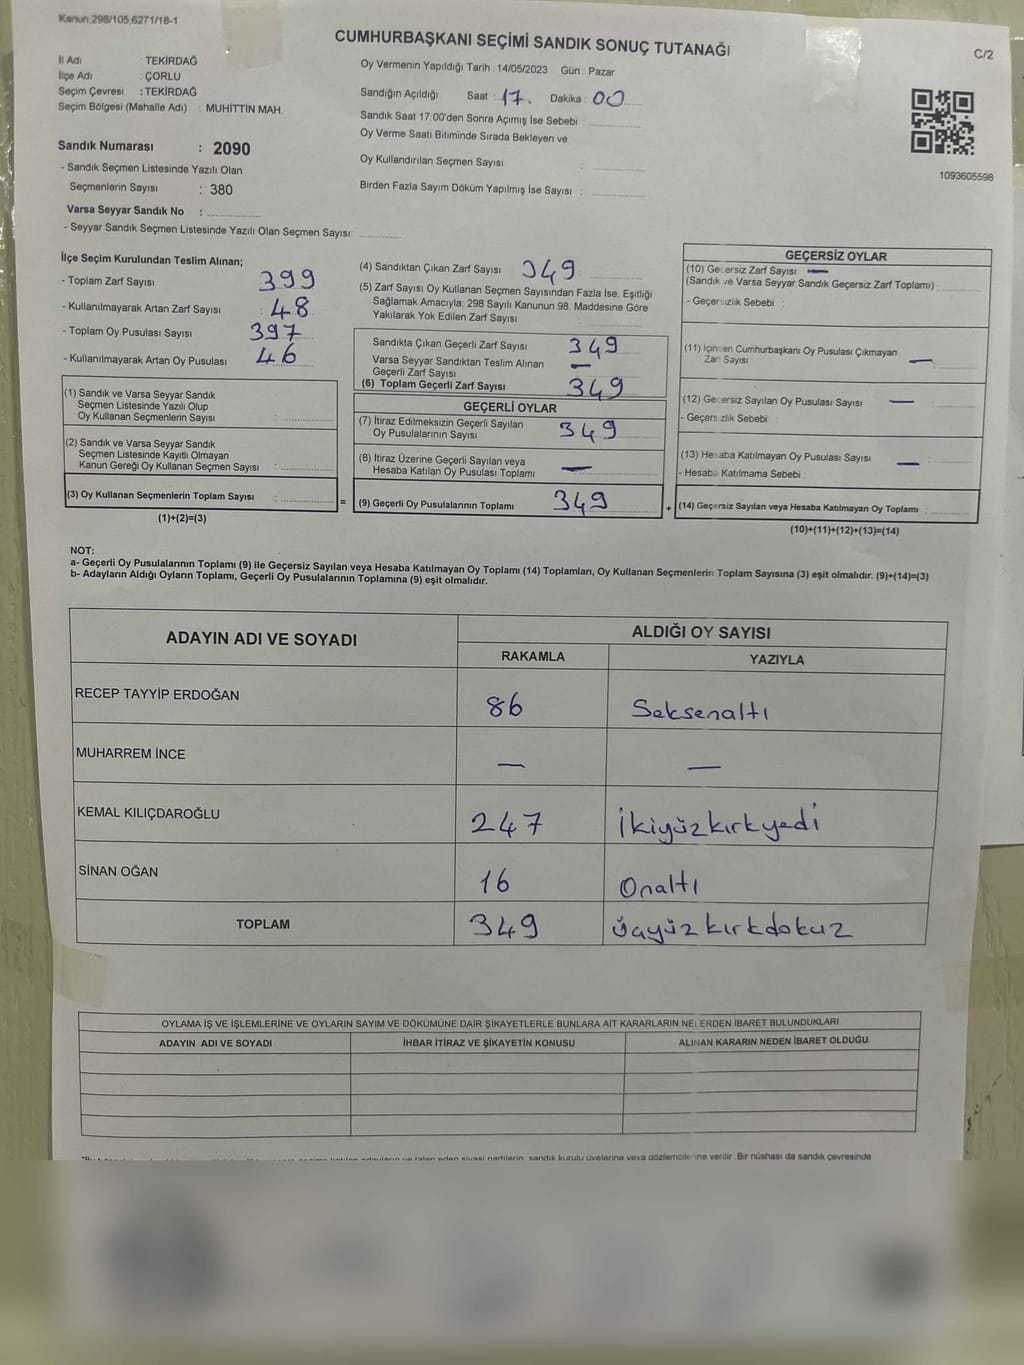 Kanun 298/105,6271/18-1
CUMHURBAŞKANI SEÇİMİ SANDIK SONUÇ TUTANAĞI
C/2
İl Adı : TEKİRDAĞ
İlçe Adı : ÇORLU
Seçim Çevresi : TEKİRDAĞ
Seçim Bölgesi (Mahalle Adı) : MUHİTTİN MAH.
Sandık Numarası : 2090
- Sandık Seçmen Listesinde Yazılı Olan
Seçmenlerin Sayısı : 380
Varsa Seyyar Sandık No :
- Seyyar Sandık Seçmen Listesinde Yazılı Olan Seçmen Sayısı:
Oy Vermenin Yapıldığı Tarih : 14/05/2023 Gün : Pazar
Sandığın Açıldığı Saat : 17. Dakika : 00
Sandık Saat 17:00'den Sonra Açımış İse Sebebi :
Oy Verme Saati Bitiminde Sırada Bekleyen ve
Oy Kullandırılan Seçmen Sayısı :
Birden Fazla Sayım Döküm Yapılmış İse Sayısı :
1093605598
İlçe Seçim Kurulundan Teslim Alınan;
- Toplam Zarf Sayısı : 399
- Kullanılmayarak Artan Zarf Sayısı : 48
- Toplam Oy Pusulası Sayısı 397
- Kullanılmayarak Artan Oy Pusulası 46
(1) Sandık ve Varsa Seyyar Sandık
Seçmen Listesinde Yazılı Olup
Oy Kullanan Seçmenlerin Sayısı :
(2) Sandık ve Varsa Seyyar Sandık
Seçmen Listesinde Kayıtlı Olmayan
Kanun Gereği Oy Kullanan Seçmen Sayısı :
(3) Oy Kullanan Seçmenlerin Toplam Sayısı :
(1)+(2)=(3)
(4) Sandıktan Çıkan Zarf Sayısı 349
(5) Zarf Sayısı Oy Kullanan Seçmen Sayısından Fazla İse, Eşitliği
Sağlamak Amacıyla; 298 Sayılı Kanunun 98. Maddesine Göre
Yakılarak Yok Edilen Zarf Sayısı :
Sandıkta Çıkan Geçerli Zarf Sayısı 349
Varsa Seyyar Sandıktan Teslim Alınan
Geçerli Zarf Sayısı : —
(6) Toplam Geçerli Zarf Sayısı 349
GEÇERLİ OYLAR
(7) İtiraz Edilmeksizin Geçerli Sayılan
Oy Pusulalarının Sayısı 349
(8) İtiraz Üzerine Geçerli Sayılan veya
Hesaba Katılan Oy Pusulası Toplamı —
= (9) Geçerli Oy Pusulalarının Toplamı 349
GEÇERSİZ OYLAR
(10) Geçersiz Zarf Sayısı —
(Sandık ve Varsa Seyyar Sandık Geçersiz Zarf Toplamı) :
- Geçersizlik Sebebi :
(11) İçinden Cumhurbaşkanı Oy Pusulası Çıkmayan
Zarf Sayısı —
(12) Geçersiz Sayılan Oy Pusulası Sayısı — :
- Geçersizlik Sebebi :
(13) Hesaba Katılmayan Oy Pusulası Sayısı : —
- Hesaba Katılmama Sebebi :
+ (14) Geçersiz Sayılan veya Hesaba Katılmayan Oy Toplamı :
(10)+(11)+(12)+(13)=(14)
NOT:
a- Geçerli Oy Pusulalarının Toplamı (9) ile Geçersiz Sayılan veya Hesaba Katılmayan Oy Toplamı (14) Toplamları, Oy Kullanan Seçmenlerin Toplam Sayısına (3) eşit olmalıdır. (9)+(14)=(3)
b- Adayların Aldığı Oyların Toplamı, Geçerli Oy Pusulalarının Toplamına (9) eşit olmalıdır.
ADAYIN ADI VE SOYADI
ALDIĞI OY SAYISI
RAKAMLA YAZIYLA
RECEP TAYYİP ERDOĞAN 86 Seksenaltı
MUHARREM İNCE — —
KEMAL KILIÇDAROĞLU 247 İkiyüzkırkyedi
SİNAN OĞAN 16 Onaltı
TOPLAM 349 üçyüzkırkdokuz
OYLAMA İŞ VE İŞLEMLERİNE VE OYLARIN SAYIM VE DÖKÜMÜNE DAİR ŞİKAYETLERLE BUNLARA AİT KARARLARIN NELERDEN İBARET BULUNDUKLARI
ADAYIN ADI VE SOYADI İHBAR İTİRAZ VE ŞİKAYETİN KONUSU ALINAN KARARIN NEDEN İBARET OLDUĞU
sandık kurulu üyelerine veya gözlemcilerine verilir. Bir nüshası da sandık çevresinde